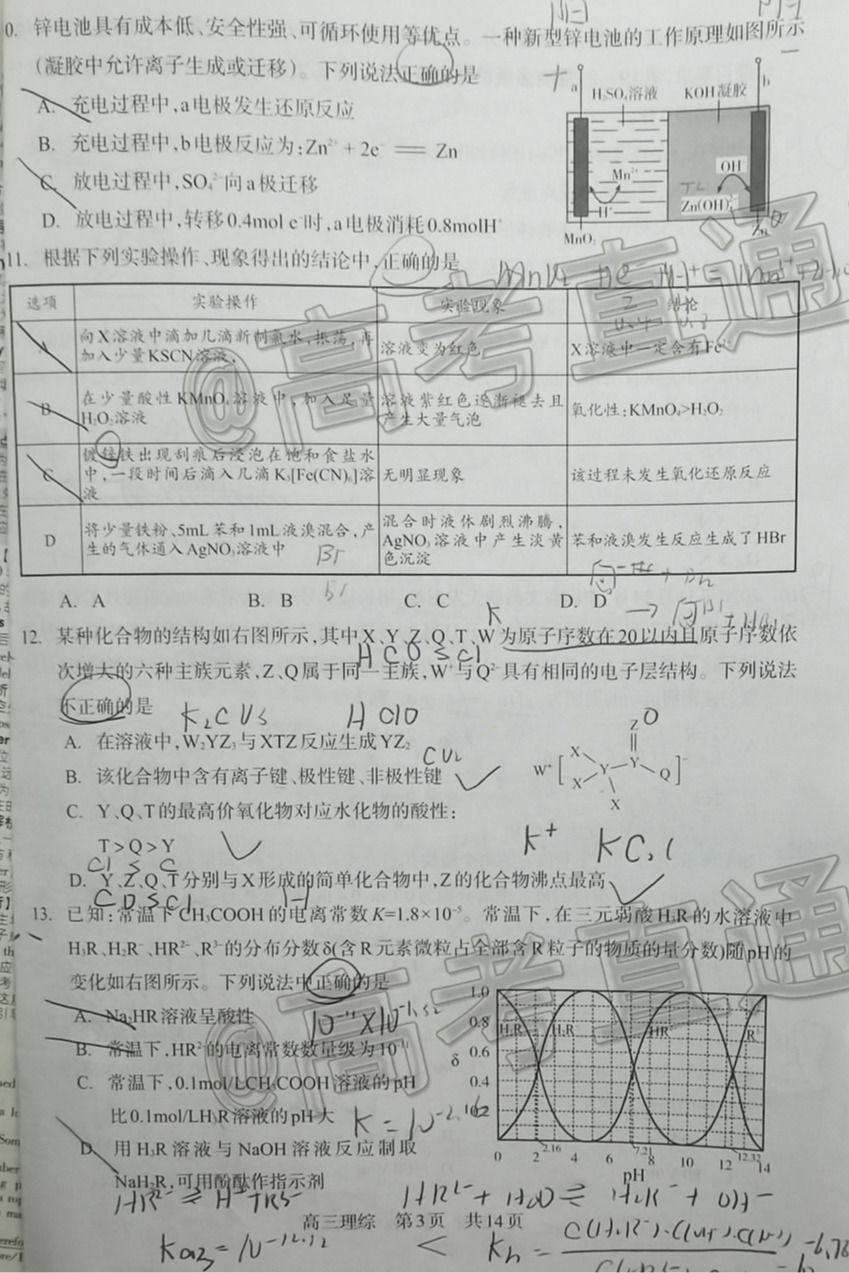 0. 锌电池具有成本低、安全性强、可循环使用等优点。一种新型锌电池的工作原理如图所示
(凝胶中允许离子生成或迁移)。下列说法正确的是
A. 充电过程中,a电极发生还原反应
B. 充电过程中,b电极反应为:Zn²⁺ + 2e⁻ == Zn
C. 放电过程中,SO₄²⁻向a极迁移
D. 放电过程中,转移0.4mol e⁻时,a电极消耗0.8molH⁺
a
b
H₂SO₄溶液
KOH凝胶
Mn²⁺
H⁺
OH⁻
Zn(OH)₄²⁻
MnO₂
Zn
11. 根据下列实验操作、现象得出的结论中,正确的是
选项 实验操作 实验现象 结论
A 向X溶液中滴加几滴新制氯水,振荡,再加入少量KSCN溶液, 溶液变为红色 X溶液中一定含有Fe²⁺
B 在少量酸性KMnO₄溶液中,加入足量H₂O₂溶液 溶液紫红色逐渐褪去且产生大量气泡 氧化性:KMnO₄>H₂O₂
C 镀锌铁出现刮痕后浸泡在饱和食盐水中,一段时间后滴入几滴K₃[Fe(CN)₆]溶液 无明显现象 该过程未发生氧化还原反应
D 将少量铁粉、5mL苯和1mL液溴混合,产生的气体通入AgNO₃溶液中 混合时液体剧烈沸腾,AgNO₃溶液中产生淡黄色沉淀 苯和液溴发生反应生成了HBr
A. A B. B C. C D. D
12. 某种化合物的结构如右图所示,其中X、Y、Z、Q、T、W为原子序数在20以内且原子序数依
次增大的六种主族元素,Z、Q属于同一主族,W⁺与Q²⁻具有相同的电子层结构。下列说法
不正确的是
A. 在溶液中,W₂YZ₃与XTZ反应生成YZ₂
B. 该化合物中含有离子键、极性键、非极性键
C. Y、Q、T的最高价氧化物对应水化物的酸性:
T>Q>Y
D. Y、Z、Q、T分别与X形成的简单化合物中,Z的化合物沸点最高
W⁺
Z
X
X
Y
Y
Q
X
13. 已知:常温下CH₃COOH的电离常数K=1.8×10⁻⁵。常温下,在三元弱酸H₃R的水溶液中
H₃R、H₂R⁻、HR²⁻、R³⁻的分布分数δ(含R元素微粒占全部含R粒子的物质的量分数)随pH的
变化如右图所示。下列说法中正确的是
A. Na₂HR溶液呈酸性
B. 常温下,HR²⁻的电离常数数量级为10⁻¹¹
C. 常温下,0.1mol/LCH₃COOH溶液的pH
比0.1mol/LH₃R溶液的pH大
D. 用H₃R溶液与NaOH溶液反应制取
NaH₂R,可用酚酞作指示剂
1.0
0.8
0.6
0.4
δ
H₃R
H₂R⁻
HR²⁻
R³⁻
0 2 2.16 4 6 7.21 8 10 12 12.32 14
pH
高三理综 第3页 共14页
@高考直通
@高考直通